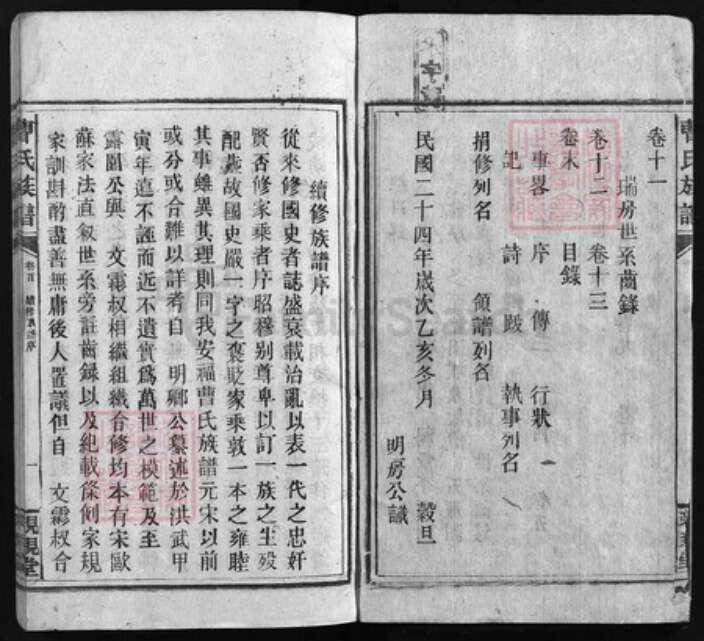 曹氏族譜
卷十一
瑞房世系齒錄
卷十二 卷十三
卷末 目錄
事畧 序 傳 行狀
記 詩 跋 執事列名
捐修列名 領譜列名
民國二十四年歲次乙亥冬月 穀旦
明房公議
續修族譜序
從來修國史者誌盛衰載治亂以表一代之忠奸
賢否修家乘者序昭穆别尊卑以訂一族之生歿
配葬故國史嚴一字之褒貶家乘敦一本之雍睦
其事雖異其理則同我安福曹氏族譜元宋以前
或分或合難以詳考自 明卿公纂述於洪武甲
寅年遠不誣而近不遺實為萬世之模範及至
露園公與之文霨叔相繼組織合修均本有宋歐
蘇家法直叙世系旁註齒錄以及紀載條例家規
家訓斟酌盡善無庸後人置議但自 文霨叔合
曹氏族譜
卷首 續修族譜序
一
覲堂